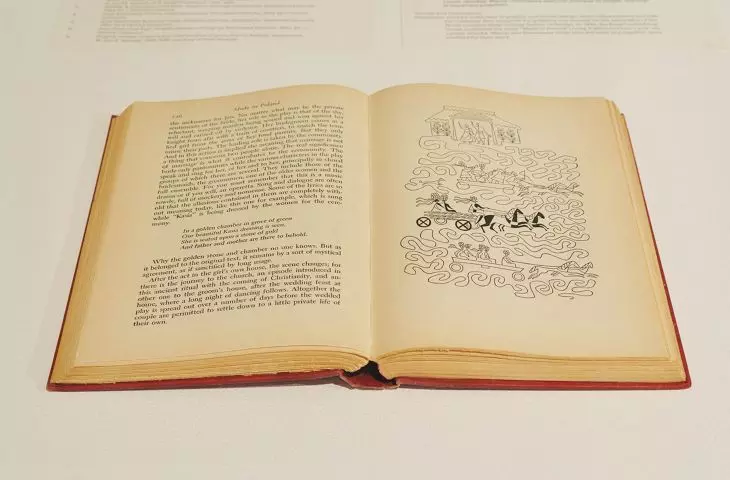 Made in Poland
the nicknames for Jan. No matter what may be the private
sentiments of the bride, her role in the play is that of the shy,
reluctant, weeping maiden being wooed and won against her
will and carried off by violence. Her bridegroom comes as a
knight from afar with a train of cronies, to snatch the
girl from the arms of her fond parents. But they only
enact their parts. The leading role is taken by the community.
And in this action is implied the meaning that marriage is not
a thing that concerns two people alone. The real significance
of marriage is what it contributes to the community. The
bride only pantomimes while the various characters in the play
speak and sing for her, of her and to her, principally in chorus
groups of which there are several. They include those of the
bridesmaids, the groomsmen, one of the older women and the
full ensemble. For you must remember that this is a music
drama or if you will, an operetta. Song and dialogue are often
rowdy, full of mockery and nonsense. Some of the lyrics are so
old that the illusions contained in them are completely with-
out meaning today, like this one for example, which is sung
while "Kasia" is being dressed by the women for the cere-
mony:
In a golden chamber in grove of green
Our beautiful Kasia dressing is seen.
She is seated upon a stone of gold
And father and mother are there to behold.
Why the golden stone and chamber no one knows. But as
it belonged to the original text, it remains by a sort of mystical
agreement, as if sanctified by long usage.
After the act in the girl's own house, the scene changes; for
there is the journey to the church, an episode introduced in
this ancient ritual with the coming of Christianity, and an-
other one to the groom's house, after the wedding feast at
home, where a long night of dancing follows. Altogether the
play is spread out over a number of days before the wedded
couple are permitted to settle down to a little private life of
their own.